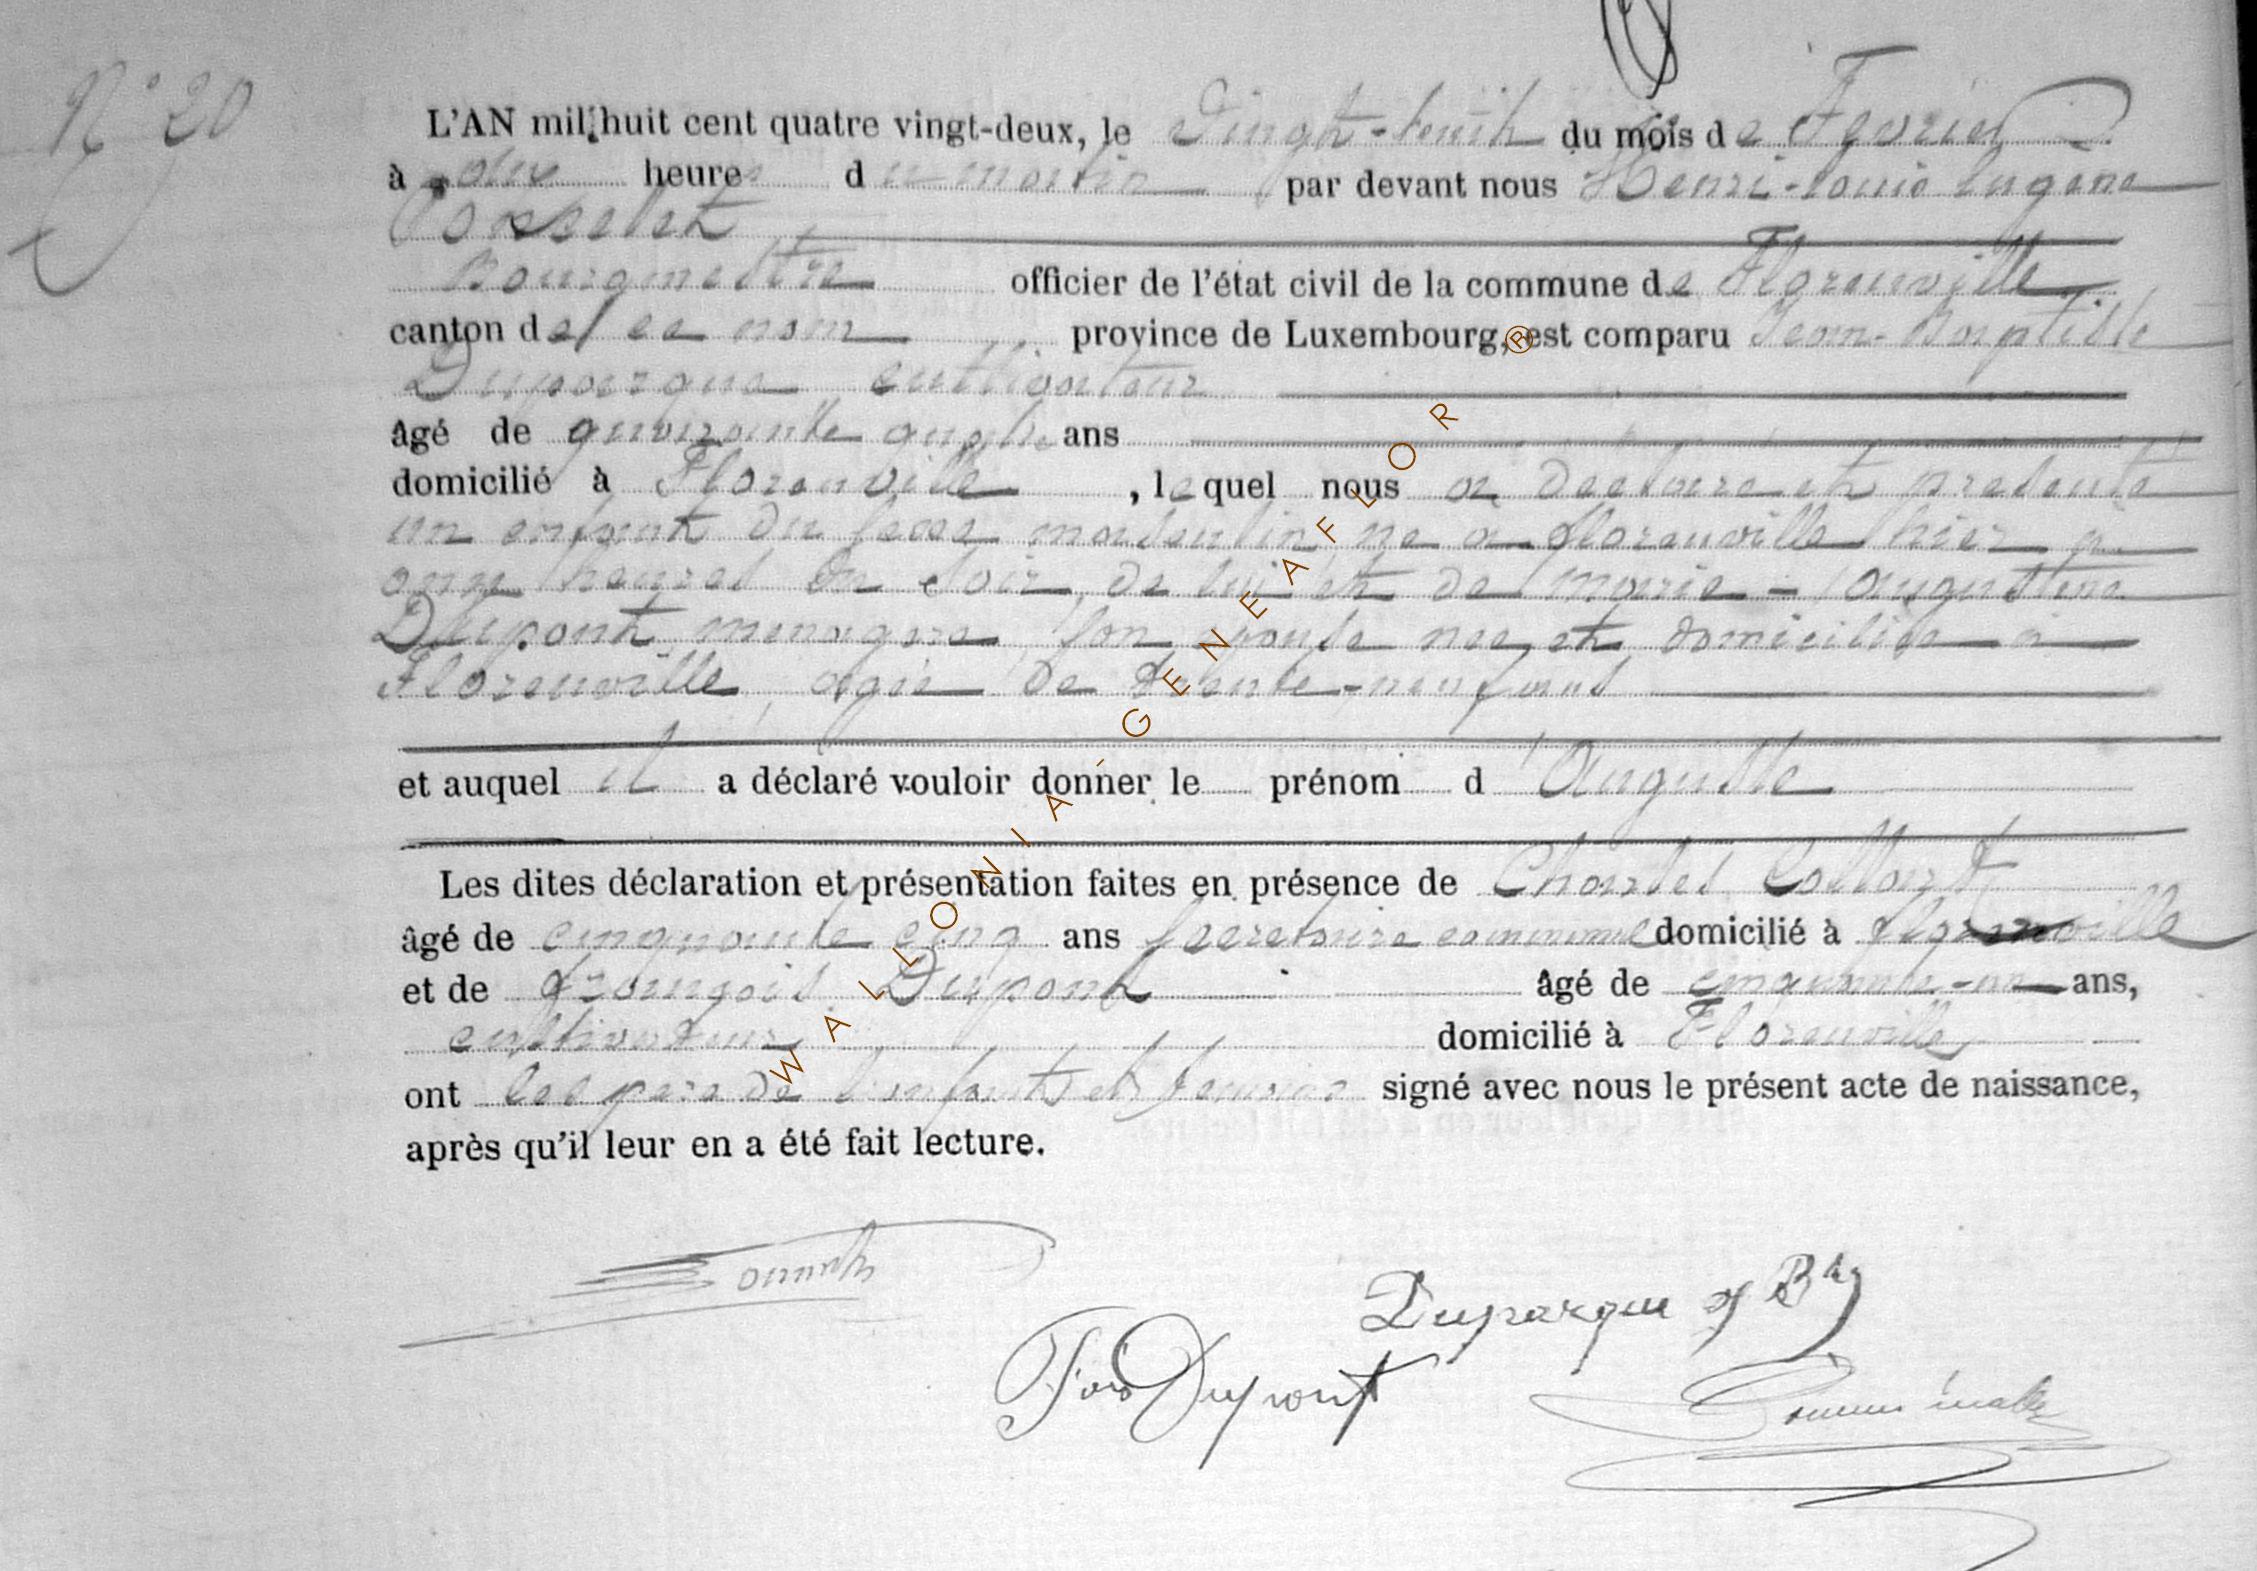 N° 20
L'AN mil huit cent quatre vingt-deux, le Vingt-huit du mois de Fevrier
à dix heures du matin par devant nous Henri-Louis Eugène
Bourgmestre officier de l'état civil de la commune de Florenville
canton de ce nom province de Luxembourg, est comparu Jean-Baptiste
Duparque cultivateur
âgé de quarante quatre ans
domicilié à Florenville, lequel nous a déclaré et présenté
un enfant du sexe masculin, né à florenville hier à
onze heures du soir, de lui et de Marie-Augustine
Dupont menagère son épouse née et domiciliée à
Florenville, agée de trente-neuf ans
et auquel il a déclaré vouloir donner le prénom d'Auguste
Les dites déclaration et présentation faites en présence de Charles Collard
âgé de cinquante cinq ans secretaire communal domicilié à florenville
et de françois Dupont âgé de cinquante-un ans,
cultivateur domicilié à Florenville
ont les pere de l'enfant et temoins signé avec nous le présent acte de naissance,
après qu'il leur en a été fait lecture.
Duparque J Bte
Fois Dupont
WALLONIA-GENEAFLOR®